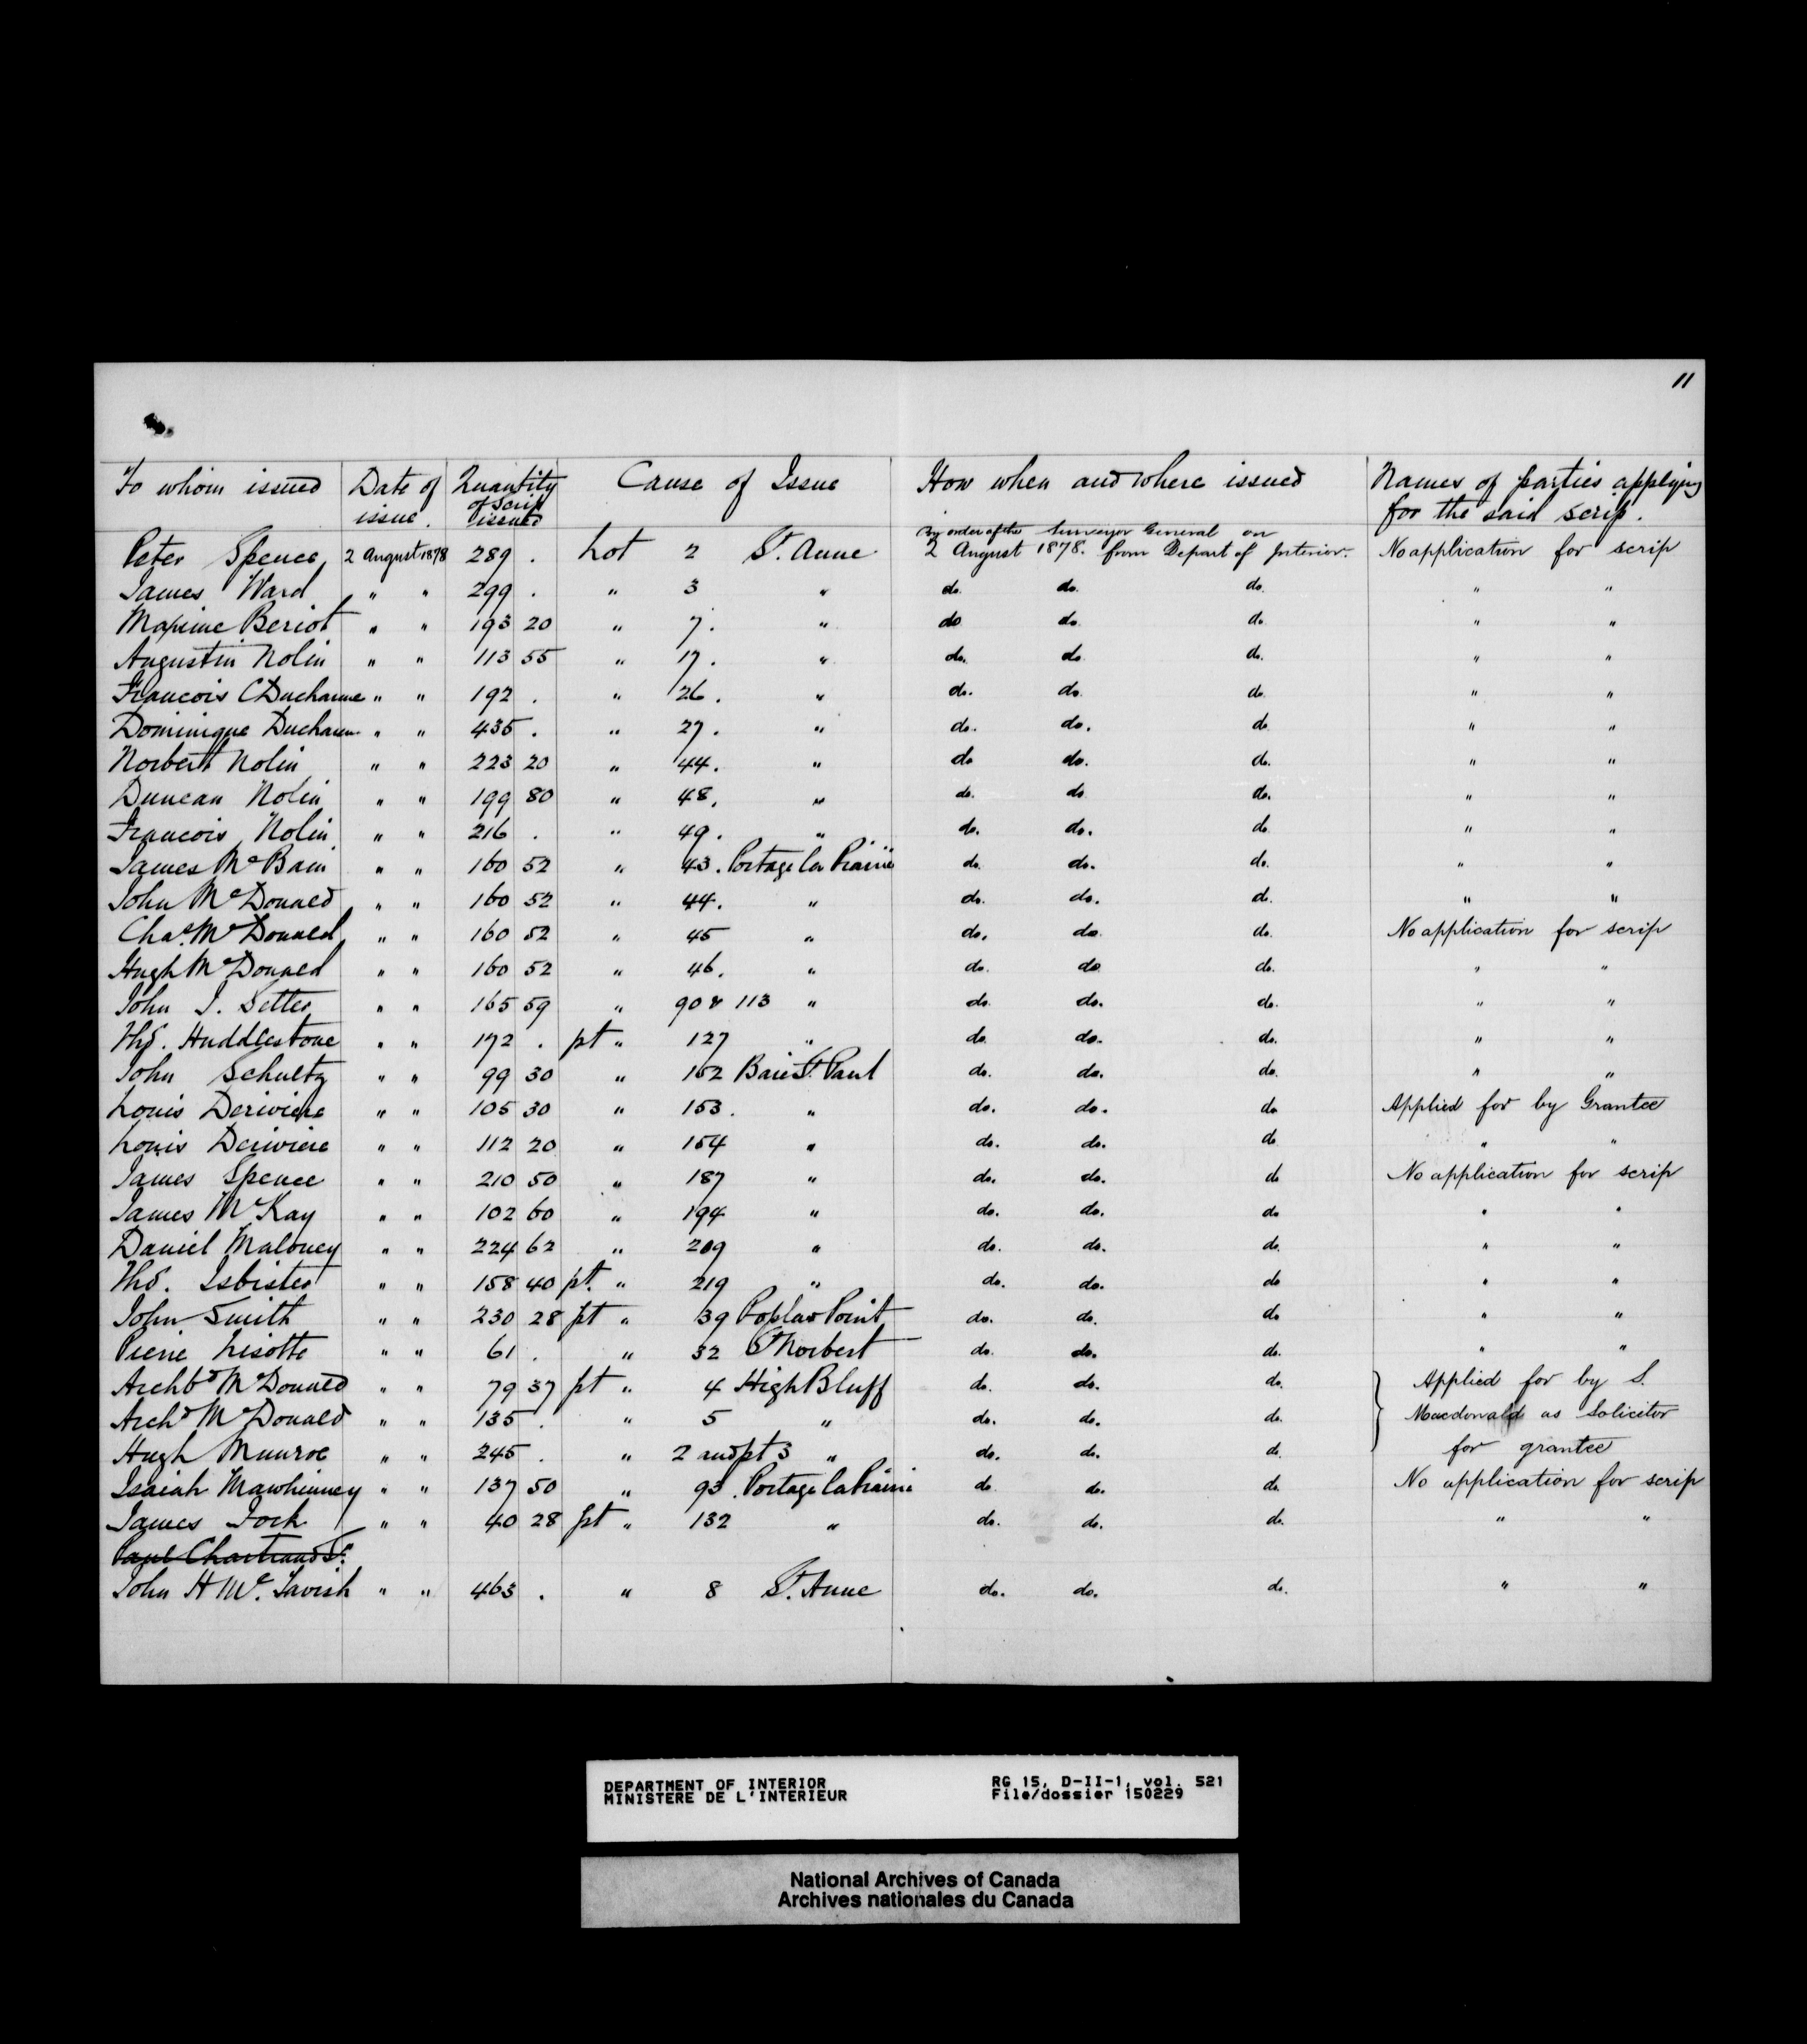 11
To whom issued | Date of issue. | Quantity of Scrip issued | Cause of Issue | How when and where issued | Names of parties applying for the said scrip.
Peter Spence | 2 August 1878 | 289 . | Lot 2 St. Anne | By order of the Surveyor General on 2 August 1878. from Depart of Interior. | No application for scrip
James Ward | " " | 299 . | " 3 " | do. do. do. | " "
Maxime Beriot | " " | 193 20 | " 7. " | do do. do | " "
Augustin Nolin | " " | 113 55 | " 17. " | do. do. do. | " "
Francois C Ducharme | " " | 192 . | " 26. " | do. do. do. | " "
Dominique Ducharme | " " | 435 . | " 27. " | do. do. do | " "
Norbert Nolin | " " | 223 20 | " 44. " | do do. do. | " "
Duncan Nolin | " " | 199 80 | " 48. " | do. do do. | " "
Francois Nolin | " " | 216 . | " 49. " | do. do. do. | " "
James McBain | " " | 160 52 | " 43. Portage la Prairie | do. do. do. | " "
John McDonald | " " | 160 52 | " 44. " | do. do. do. | " "
Chas. McDonald | " " | 160 52 | " 45 " | do. do. do. | No application for scrip
Hugh McDonald | " " | 160 52 | " 46. " | do. do do. | " "
John J. Setter | " " | 165 59 | " 90 & 113 " | do. do. do. | " "
Thos. Huddlestone | " " | 172 . | pt " 127 " | do. do. do. | " "
John Schultz | " " | 99 30 | " 152 Baie St. Paul | do. do. do. | " "
Louis Deriviere | " " | 105 30 | " 153. " | do. do. do | Applied for by Grantee
Louis Deriviere | " " | 112 20 | " 154 " | do. do. do | " "
James Spence | " " | 210 50 | " 187 " | do. do. do | No application for scrip
James McKay | " " | 102 60 | " 194 " | do. do. do | " "
Daniel Maloney | " " | 224 62 | " 209 " | do. do. do. | " "
Thos. Isbister | " " | 158 40 | pt. " 219 " | do. do. do | " "
John Smith | " " | 230 28 | pt " 39 Poplar Point | do. do. do | " "
Pierre Lisotte | " " | 61 . | " 32 St Norbert | do. do. do. | " "
Archbd McDonald | " " | 79 37 | pt " 4 High Bluff | do. do. do. | Applied for by S.
Archd McDonald | " " | 135 . | " 5 " | do. do. do. | Macdonald as Solicitor
Hugh Munroe | " " | 245 . | " 2 and pt 3 " | do. do. do. | for grantee
Isaiah Mawhinney | " " | 137 50 | " 93. Portage la Prairie | do do. do. | No application for scrip
James Jock | " " | 40 28 | pt " 132 " | do. do. do. | " "
Paul Chartrand Sr.
John H McTavish | " " | 463 . | " 8 St. Anne | do. do. do. | " "
DEPARTMENT OF INTERIOR RG 15, D-II-1, vol. 521
MINISTERE DE L'INTERIEUR File/dossier 150229
National Archives of Canada
Archives nationales du Canada